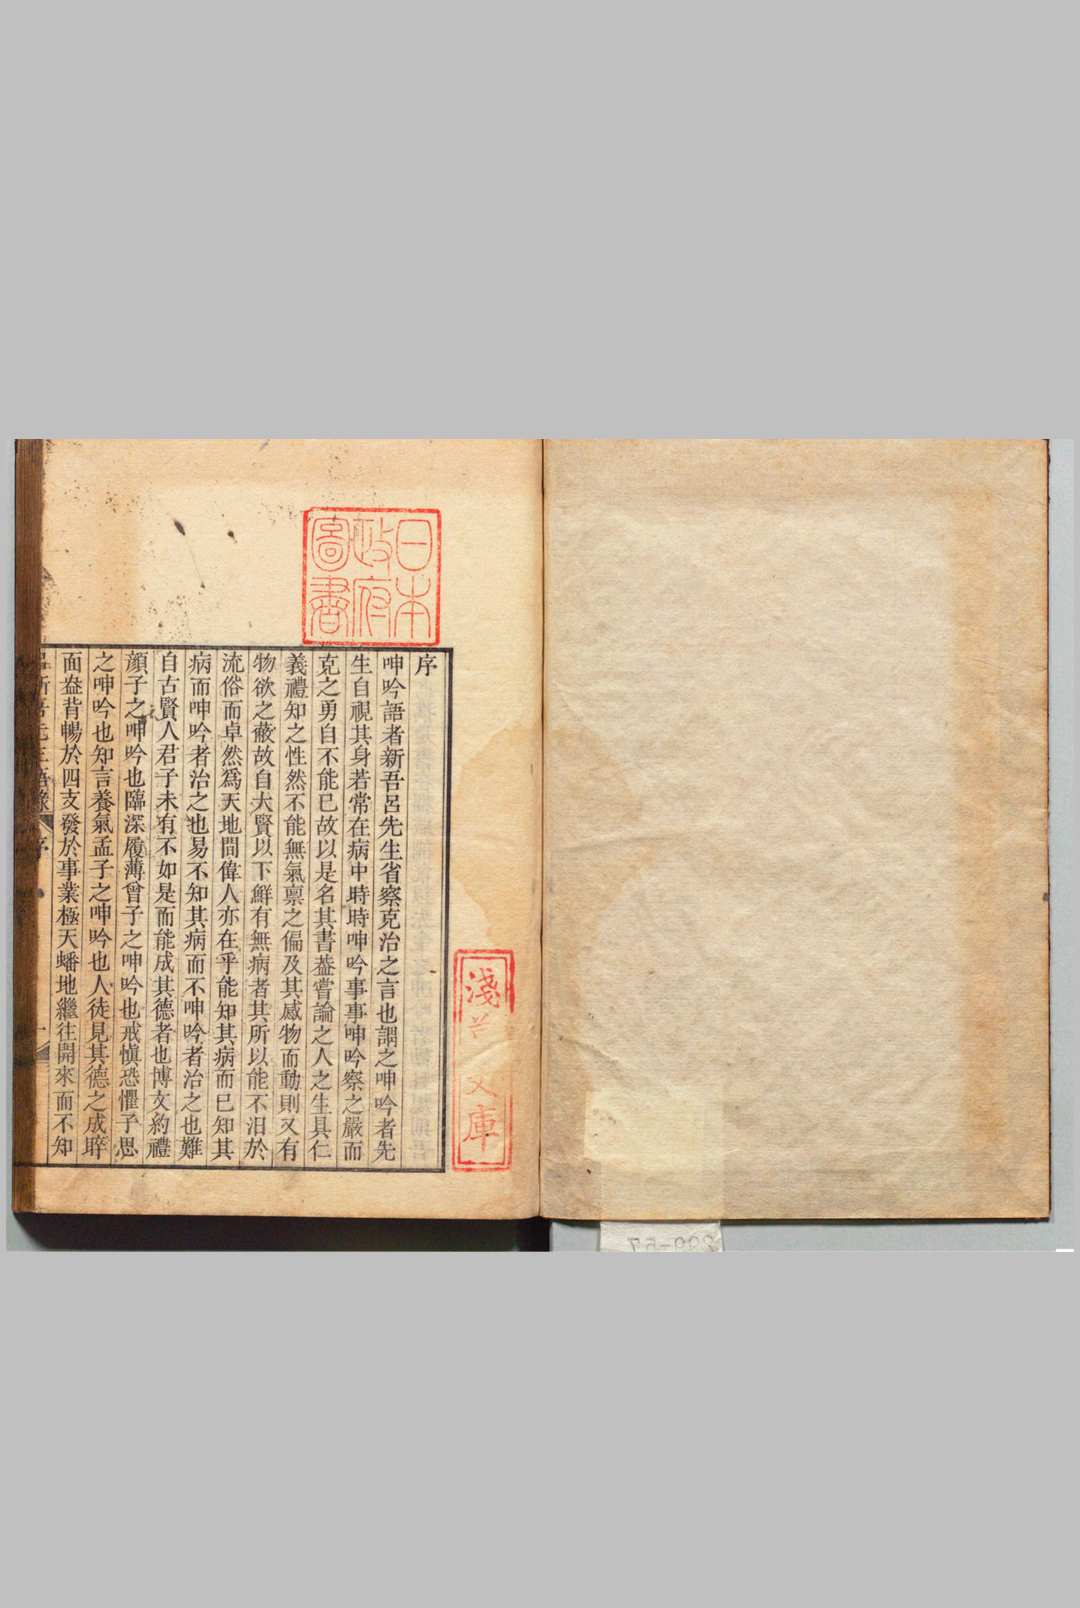 日本
政府
圖書
淺草文庫
序
呻吟語者新吾呂先生省察克治之言也謂之呻吟者先
生自視其身若常在病中時時呻吟事事呻吟察之嚴而
克之勇自不能已故以是名其書葢嘗論之人之生具仁
義禮知之性然不能無氣禀之偏及其感物而動則又有
物欲之蔽故自大賢以下鮮有無病者其所以能不汩於
流俗而卓然爲天地間偉人亦在乎能知其病而已知其
病而呻吟者治之也易不知其病而不呻吟者治之也難
自古賢人君子未有不如是而能成其德者也博文約禮
顔子之呻吟也臨深履薄曾子之呻吟也戒愼恐懼子思
之呻吟也知言養氣孟子之呻吟也人徒見其德之成睟
面盎背暢於四支發於事業極天蟠地繼往開來而不知
序
一
299-57